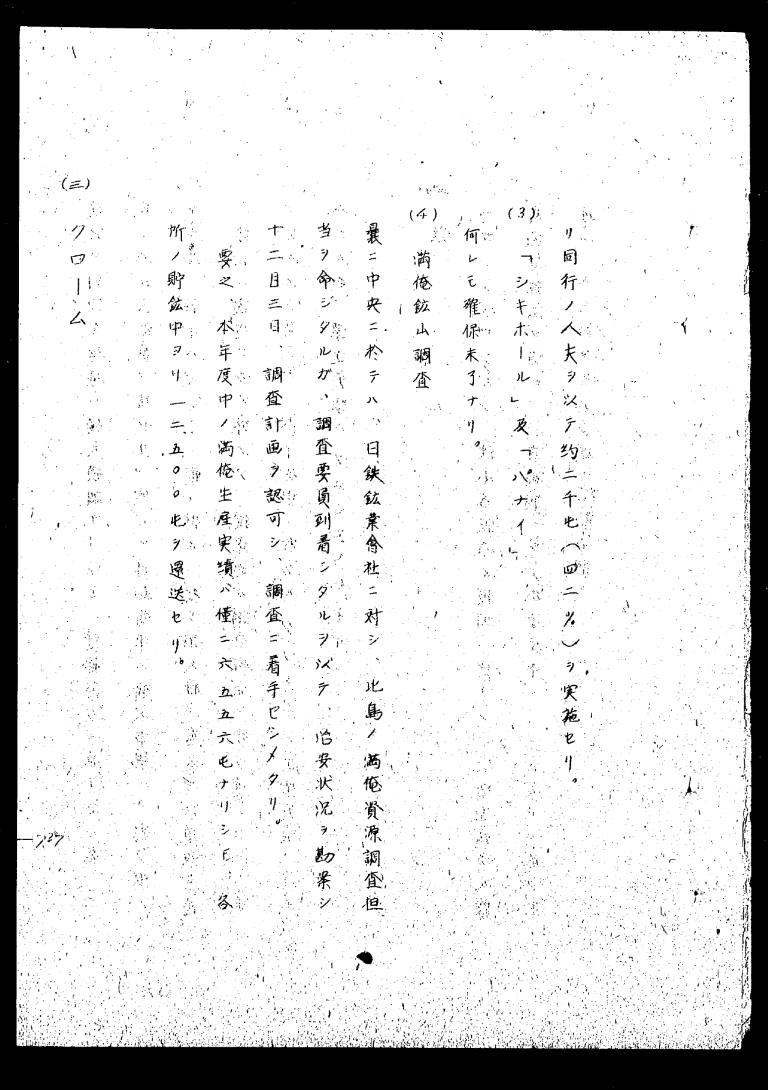 リ同行ノ人夫ヲ以テ約二千屯(四二%)ヲ実施セリ。
(3)「シキホール」及「パナイ」
何レモ確保未了ナリ。
(4) 満俺鉱山調査
曩ニ中央ニ於テハ、日鉄鉱業會社ニ対シ、比島ノ満俺資源調査担
当ヲ命ジタルガ、調査要員到着シタルヲ以テ、治安状況ヲ勘案シ
十二月三日、調査計画ヲ認可シ、調査ニ着手セシメタリ。
要之 本年度中ノ満俺生産実績ハ僅ニ六五五六屯ナリシモ 各
所ノ貯鉱中ヨリ一二五〇〇屯ヲ還送セリ。
(三) クローム